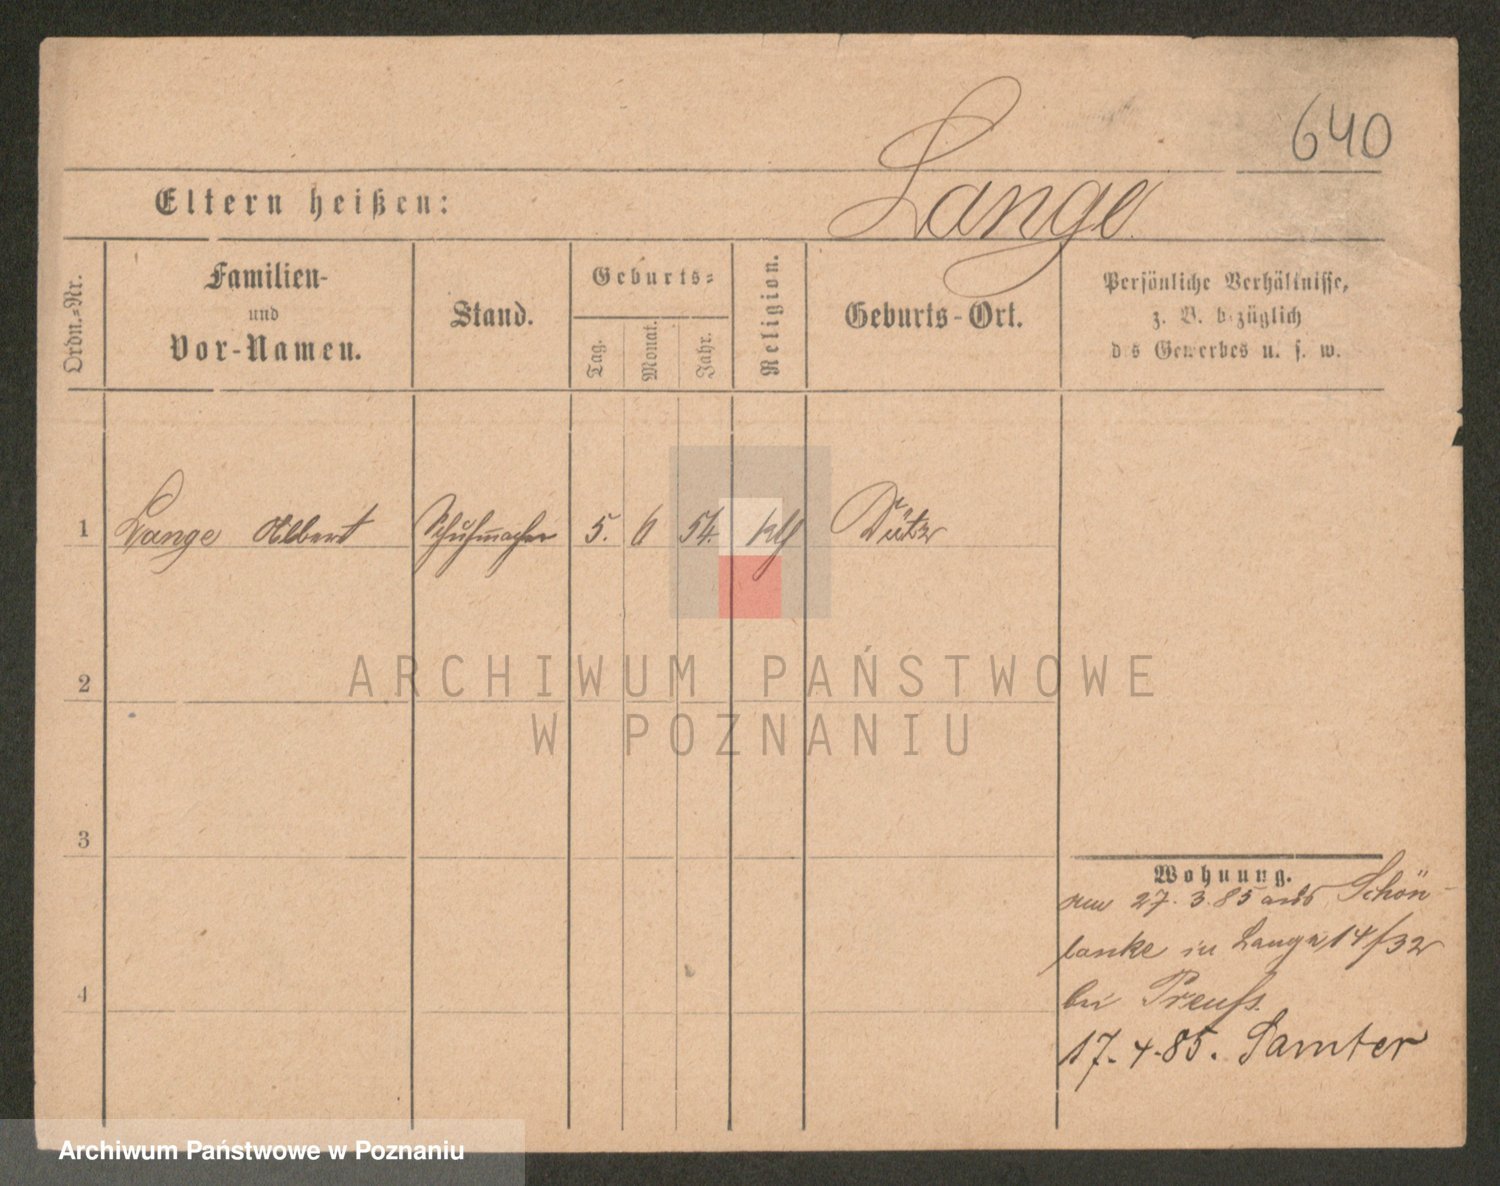 640
Lange
Eltern heißen:
Ordn.-Nr.
Familien-
und
Vor-Namen.
Stand.
Geburts-
Tag.
Monat.
Jahr.
Religion.
Geburts-Ort.
Persönliche Verhältnisse,
z. B. bezüglich
des Gewerbes u. s. w.
1 Lange Albert Schuhmacher 5. 6 54.
2
3
4
Wohnung.
27. 3. 85 aus Schön-
lanke in 14/32
bei Preuss.
17.4.85. Samter
ARCHIWUM PAŃSTWOWE
W POZNANIU
Archiwum Państwowe w Poznaniu